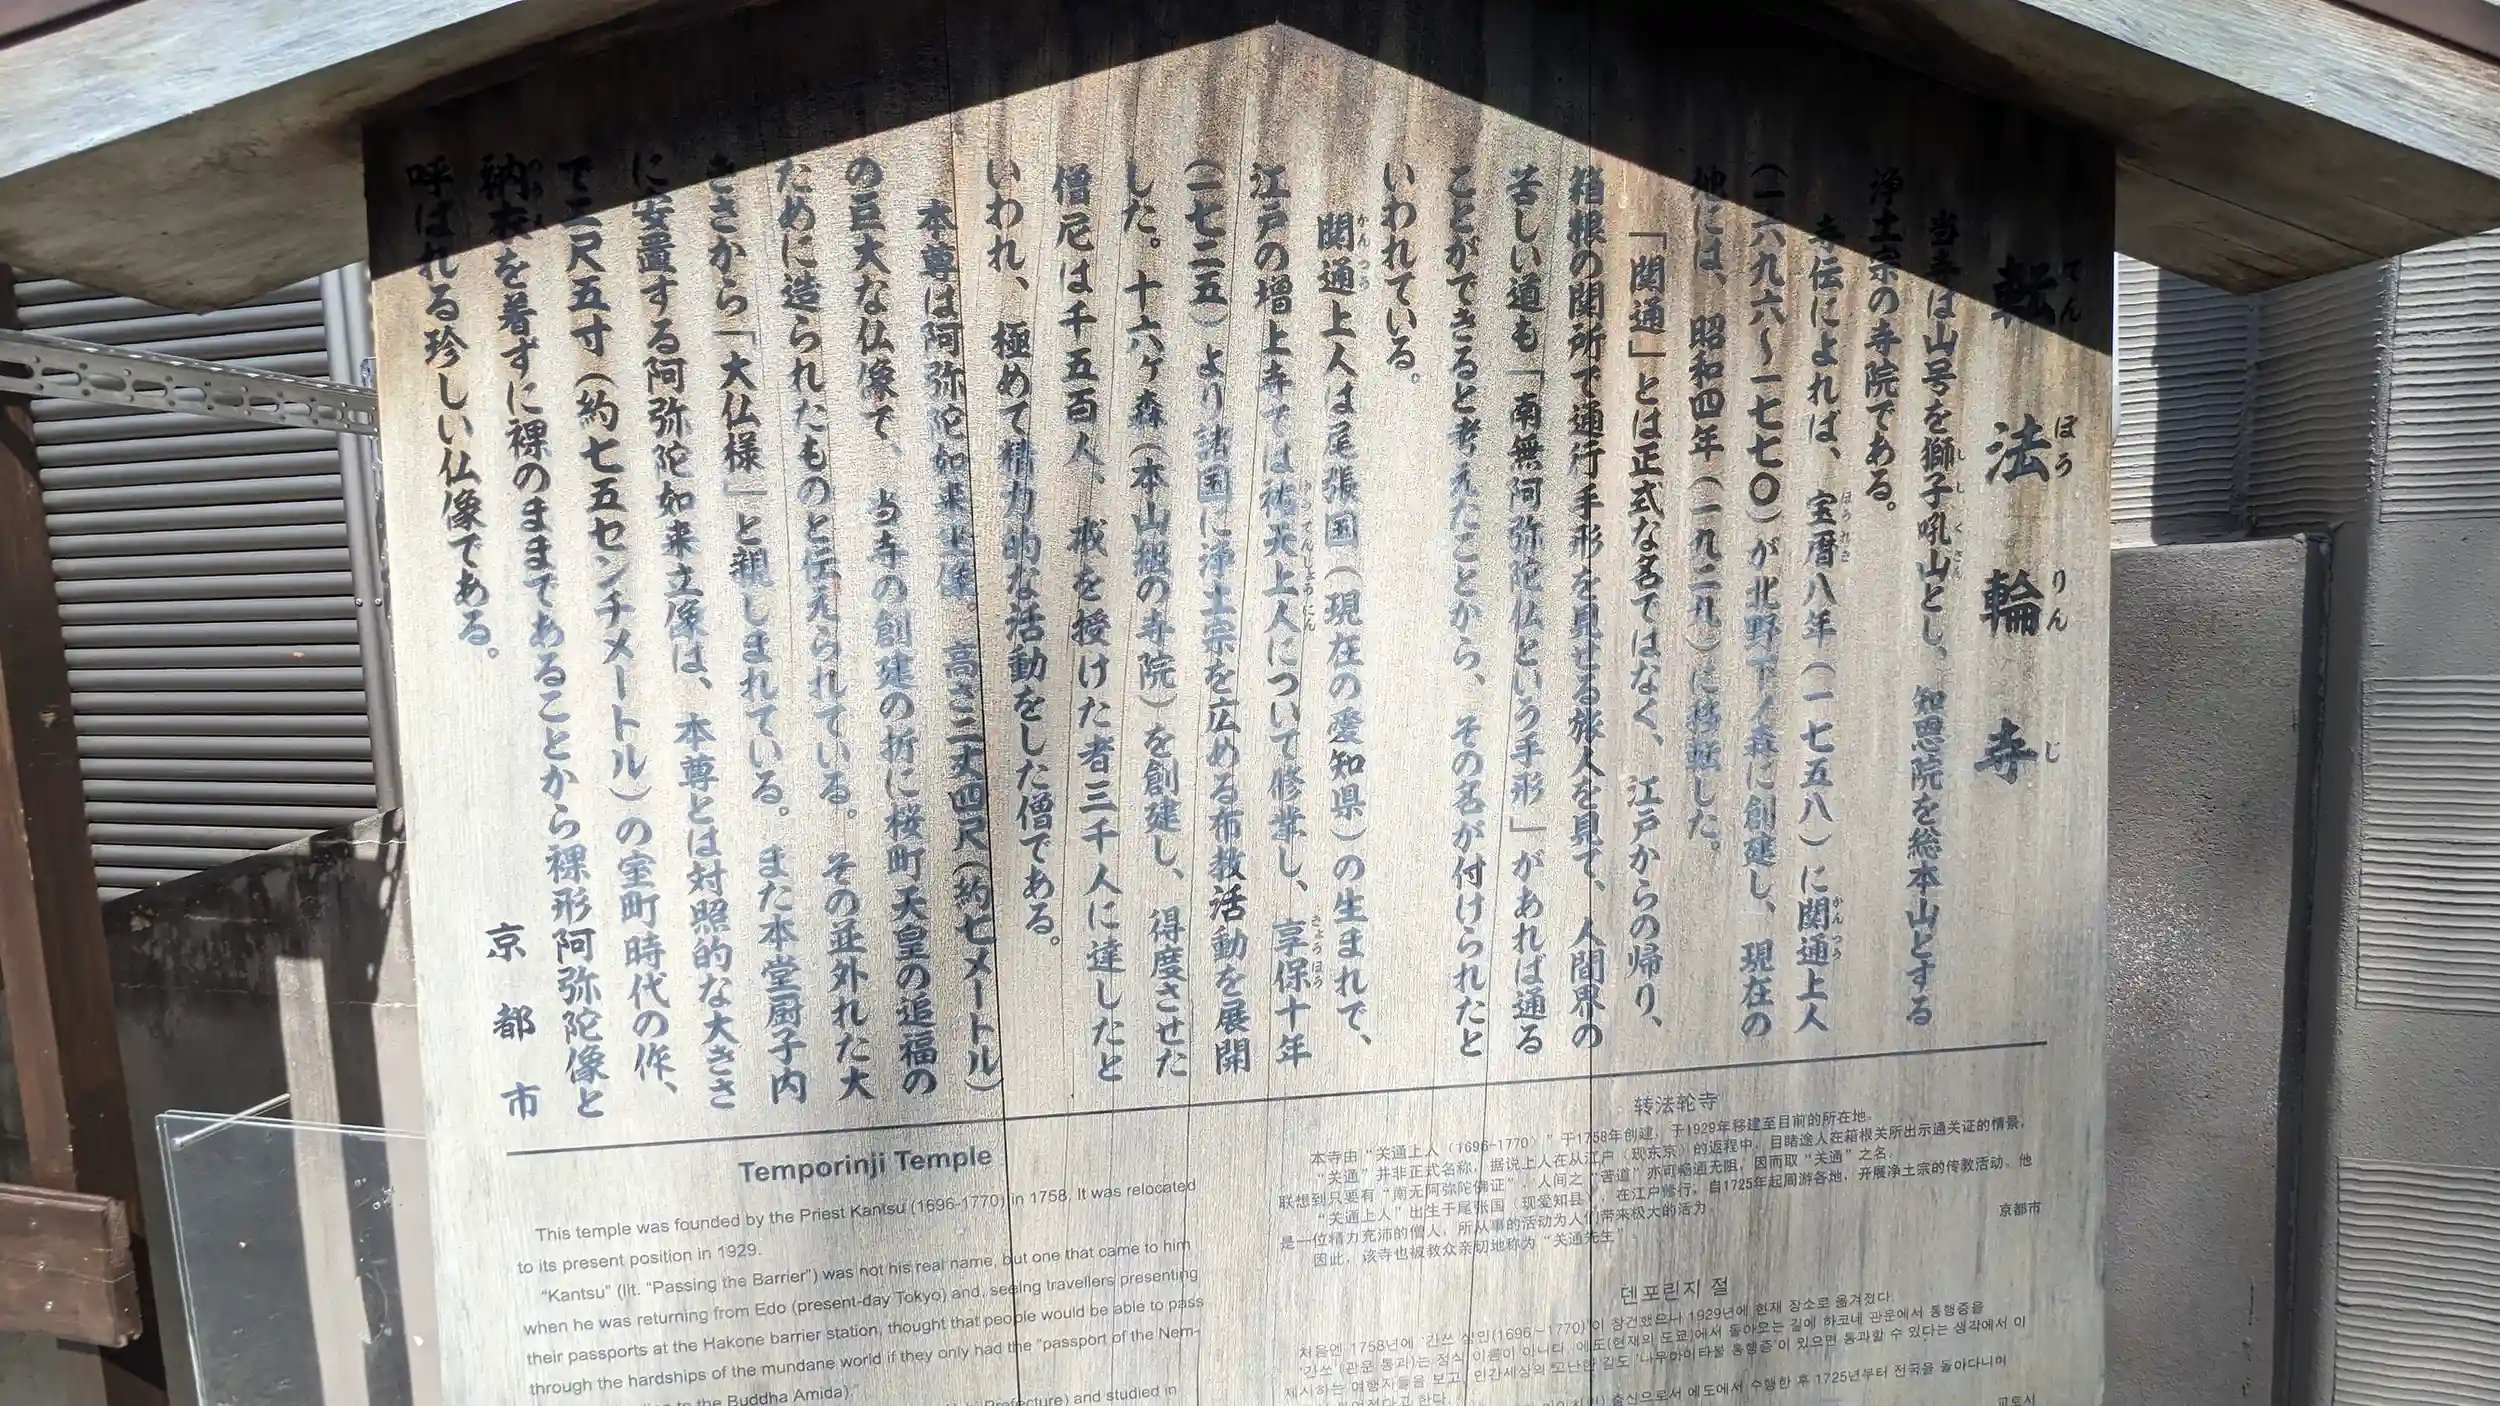 転法輪寺
てんぽうりんじ
当寺は山号を獅子吼山とし、知恩院を総本山とする
浄土宗の寺院である。
寺伝によれば、宝暦八年(一七五八)に関通上人
(一六九六〜一七七〇)が北野下ノ森に創建し、現在の
地には、昭和四年(一九二九)に移転した。
「関通」とは正式な名ではなく、江戸からの帰り、
箱根の関所で通行手形を見せる旅人を見て、人間界の
苦しい道も「南無阿弥陀仏という手形」があれば通る
ことができると考えたことから、その名が付けられたと
いわれている。
関通上人は尾張国(現在の愛知県)の生まれで、
江戸の増上寺では祐天上人について修業し、享保十年
(一七二五)より諸国に浄土宗を広める布教活動を展開
した。十六ヶ森(本山級の寺院)を創建し、得度させた
僧尼は千五百人、戒を授けた者三千人に達したと
いわれ、極めて精力的な活動をした僧である。
本尊は阿弥陀如来坐像。高さ二丈四尺(約七メートル)
の巨大な仏像で、当寺の創建の折に桜町天皇の追福の
ために造られたものと伝えられている。その並外れた大
きさから「大仏様」と親しまれている。また本堂厨子内
に安置する阿弥陀如来立像は、本尊とは対照的な大きさ
で二尺五寸(約七五センチメートル)の室町時代の作、
衲衣を着ずに裸のままであることから裸形阿弥陀像と
呼ばれる珍しい仏像である。
京都市
Temporinji Temple
This temple was founded by the Priest Kantsu (1696-1770) in 1758. It was relocated
to its present position in 1929.
"Kantsu" (lit. "Passing the Barrier") was not his real name, but one that came to him
when he was returning from Edo (present-day Tokyo) and, seeing travellers presenting
their passports at the Hakone barrier station, thought that people would be able to pass
through the hardships of the mundane world if they only had the "passport of the Nem-
to the Buddha Amida)."
Prefecture) and studied in
转法轮寺
本寺由“关通上人（1696-1770）”于1758年创建，于1929年移建至目前的所在地。
“关通”并非正式名称，据说上人在从江户（现东京）的返程中，目睹途人在箱根关所出示通关证的情景，
联想到只要有“南无阿弥陀佛证”，人间之“苦道”亦可畅通无阻，因而取“关通”之名。
“关通上人”出生于尾张国（现爱知县），在江户修行，自1725年起周游各地，开展净土宗的传教活动。他
是一位精力充沛的僧人，所从事的活动为人们带来极大的活力
因此，该寺也被教众亲切地称为“关通先生”.
京都市
덴포린지 절
처음엔 1758년에 '간쓰 상인(1696-1770)'이 창건했으나 1929년에 현재 장소로 옮겨졌다.
'간쓰'(관문 통과)는 정식 이름이 아니다. 에도(현재의 도쿄)에서 돌아오는 길에 하코네 관문에서 통행증을
제시하는 여행자들을 보고, 인간세상의 고난한 길도 '나무아미타불 통행증'이 있으면 통과할 수 있다는 생각에서 이
출신으로서 에도에서 수행한 후 1725년부터 전국을 돌아다니며
교토시